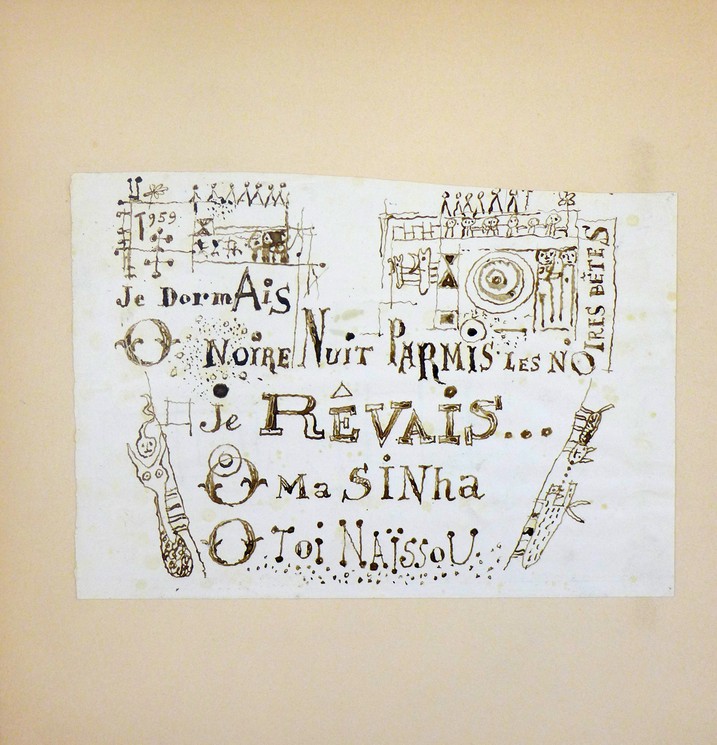 1959
Je DormAiS
O NOIRE NUIT PARMIS LES NOIRES BÊTES
Je RÊVAIS...
O Ma SINha
O Toi NAÏSSOU